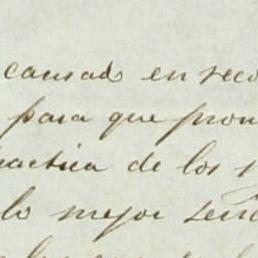 causado en reco
para que pron
ractica de los
lo mejor